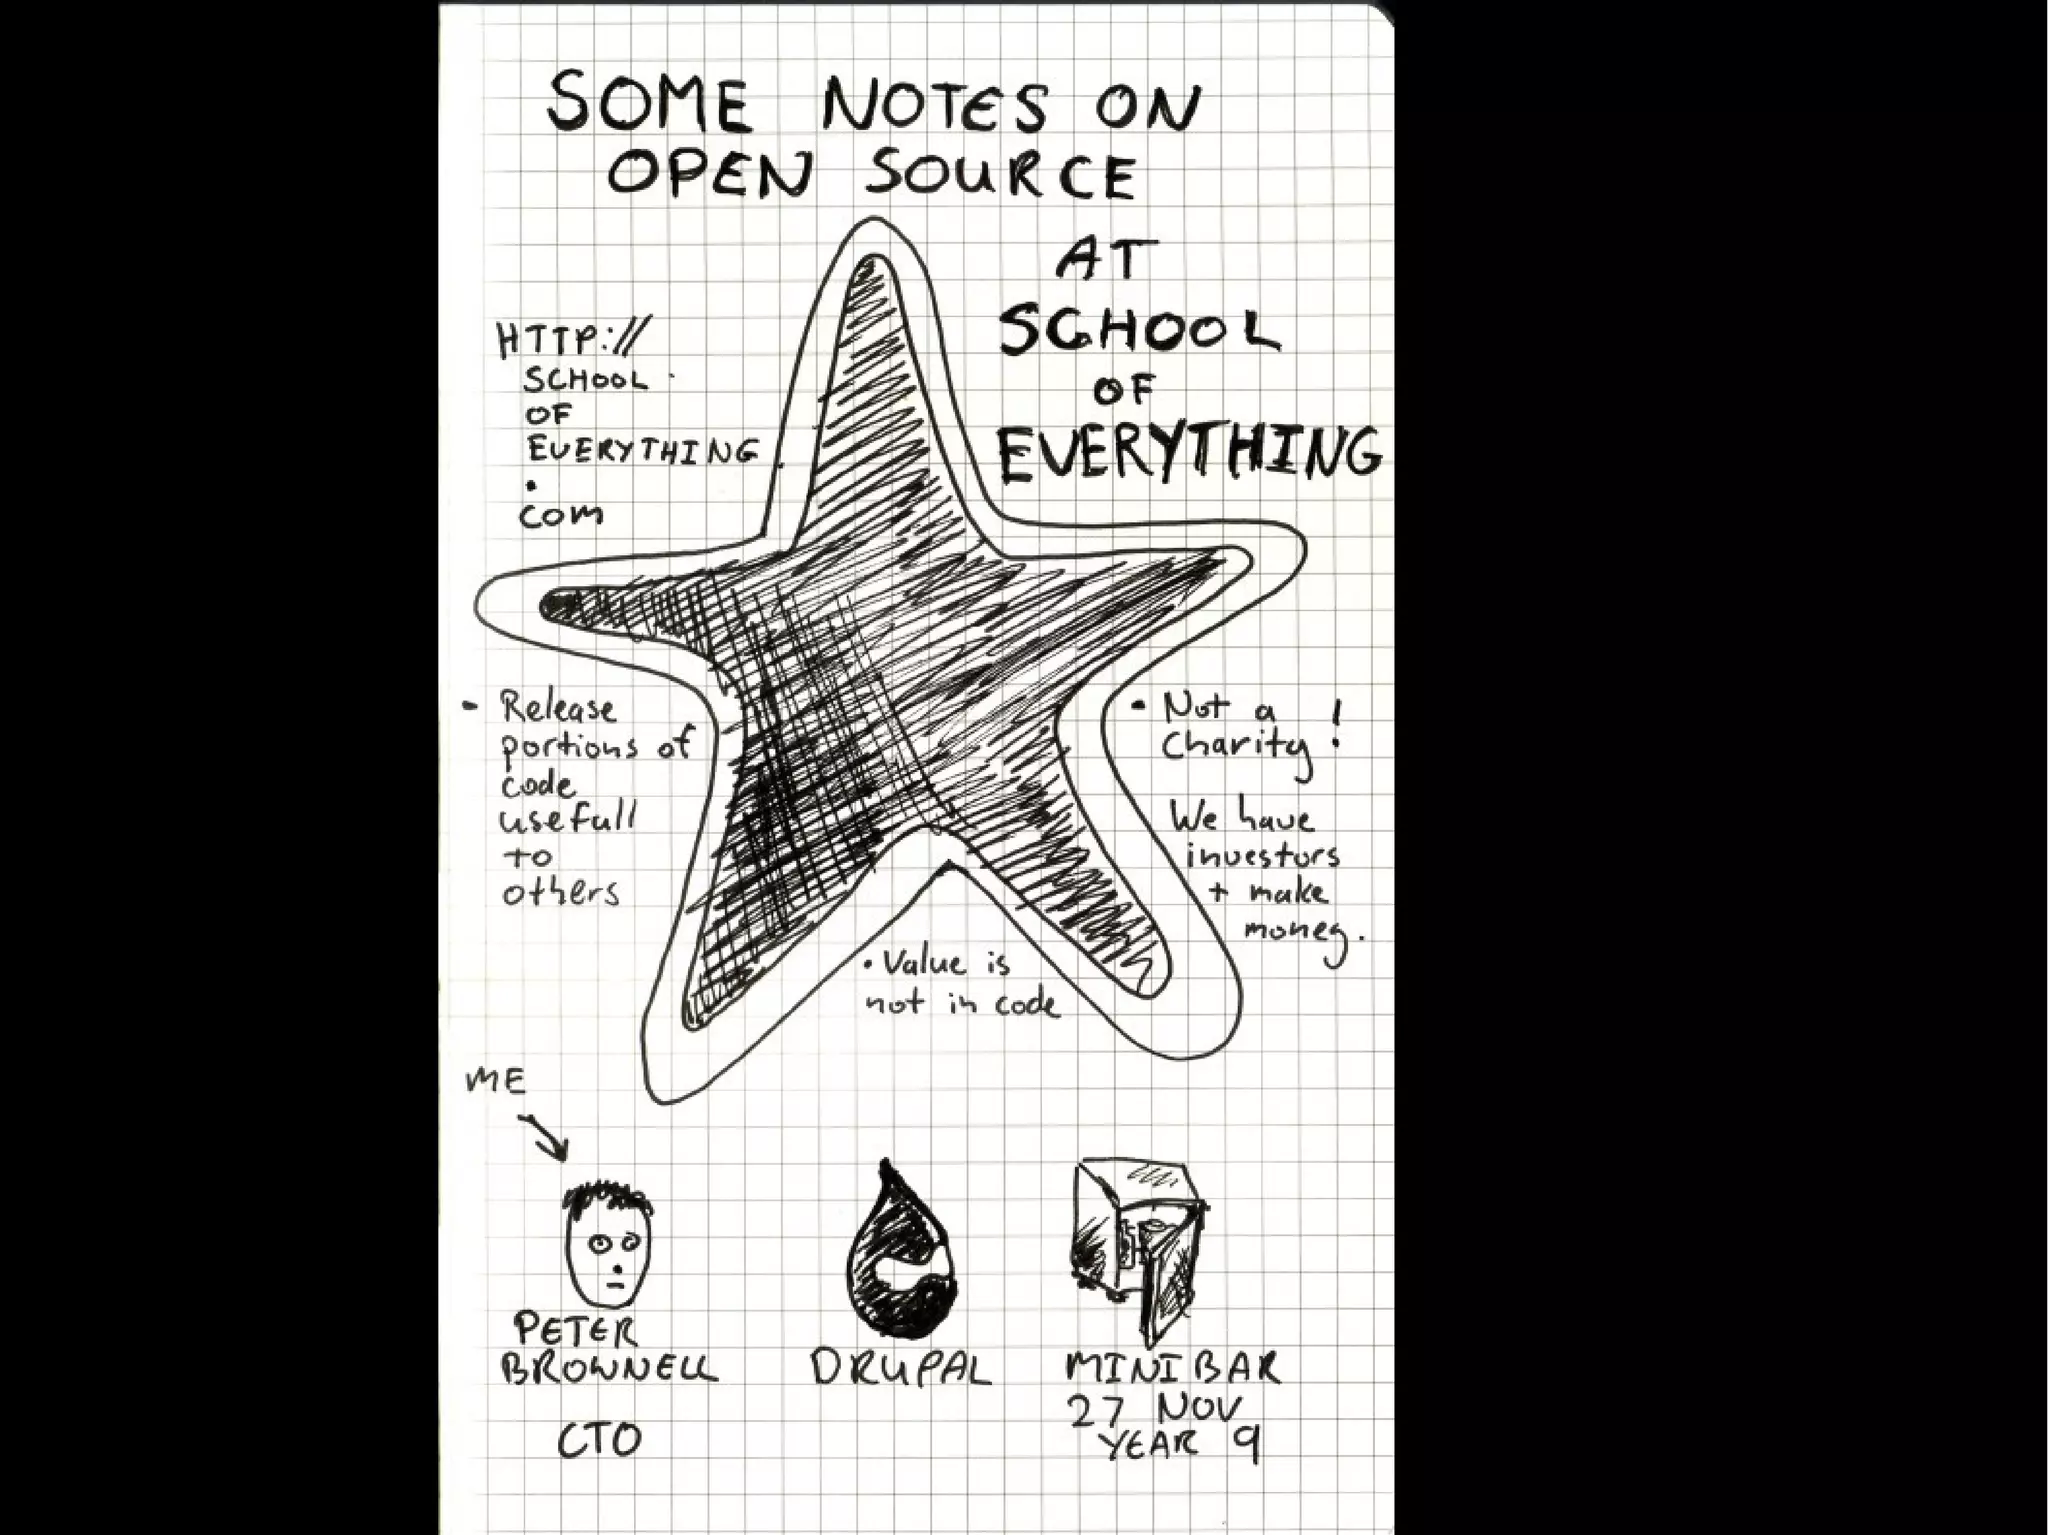 SOME NOTES ON
OPEN SOURCE
AT
SCHOOL
OF
EVERYTHING
HTTP://
SCHOOL
OF
EVERYTHING
.
com
• Release
portions of
code
usefull
to
others
• Not a
charity!
We have
investors
+ make
money.
• Value is
not in code
ME
PETER
BROWNELL
CTO
DRUPAL
MINIBAR
27 NOV
YEAR 9